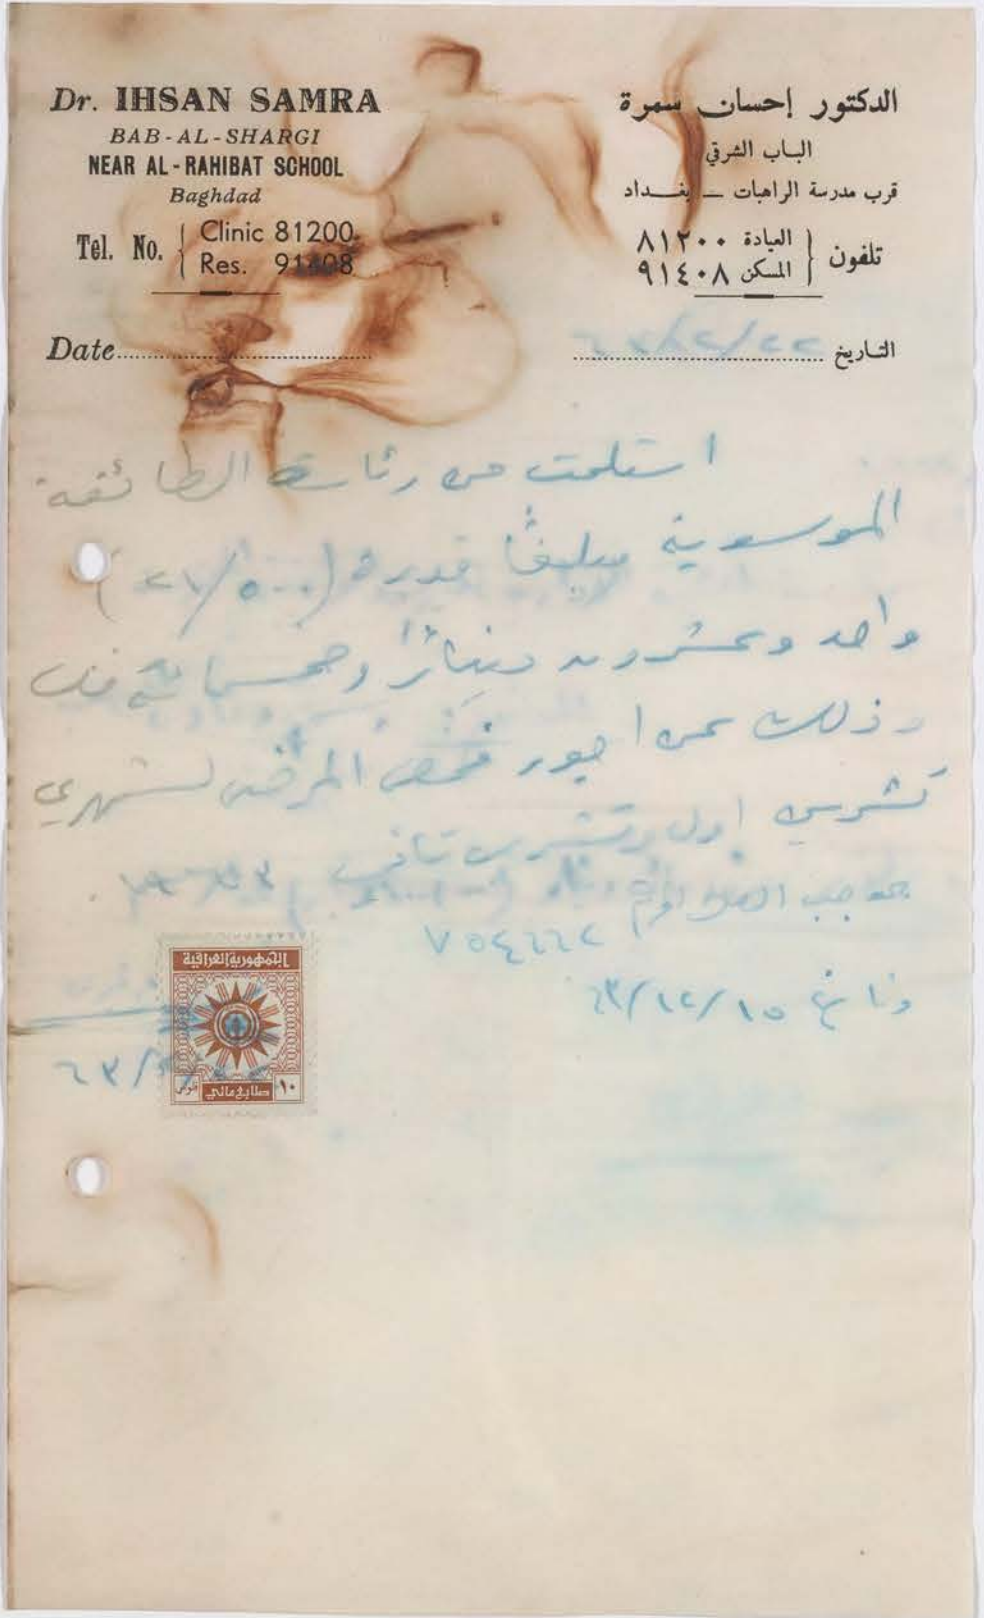 Dr. IHSAN SAMRA
BAB-AL-SHARGI
NEAR AL-RAHIBAT SCHOOL
Baghdad
Tel. No. { Clinic 81200
Res. 91408
Date
الدكتور إحسان سمرة
الباب الشرقي
قرب مدرسة الراهبات – بغداد
تلفون { العيادة ٨١٢٠٠
المسكن ٩١٤٠٨
التاريخ ٦٣/١٢/٢٢
استلمت من رئاسة الطائفة
الموسوية مبلغاً قدره (٢١/٥٠٠)
واحد وعشرون ديناراً وخمسمائة فلس
وذلك عن اجور فحص المرضى لشهري
تشرين اول وتشرين ثاني
٧٥٤٦٦٢
٦٣/١٢/١٥
الجمهورية العراقية
١٠ طابع مالي فلوس